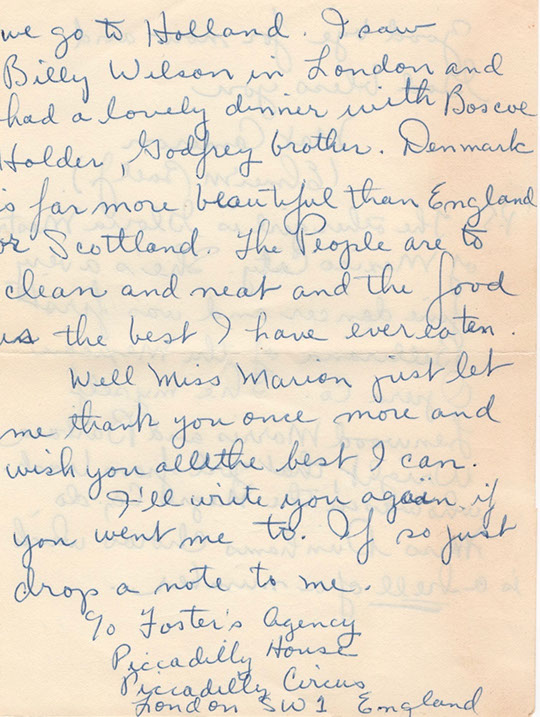 we go to Holland. I saw
Billy Wilson in London and
had a lovely dinner with Boscoe
Holder, Godfrey brother. Denmark
is far more beautiful than England
or Scottland. The People are to
clean and neat and the food
us the best I have ever eaten.
Well Miss Marion just let
me thank you once more and
wish you all the best I can.
I'll write you again if
you went me to. If so just
drop a note to me.
c/o Foster's Agency
Piccadilly House
Piccadilly Circus
London SW1 England